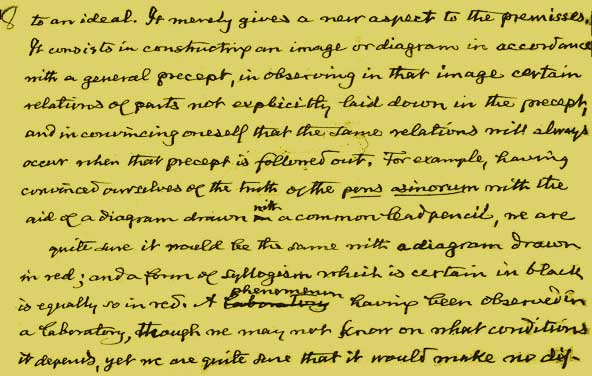 8 to an ideal. It merely gives a new aspect to the premisses.
It consists in constructing an image or diagram in accordance
with a general precept, in observing in that image certain
relations of parts not explicitly laid down in the precept,
and in convincing oneself that the same relations will always
occur when that precept is followed out. For example, having
convinced ourselves of the truth of the pons asinorum with the
with
aid of a diagram drawn in a common lead pencil, we are
quite sure it would be the same with a diagram drawn
in red; and a form of syllogism which is certain in black
phenomenon
is equally so in red. A laboratory having been observed in
a laboratory, though we may not know on what conditions
it depends, yet we are quite sure that it would make no dif-